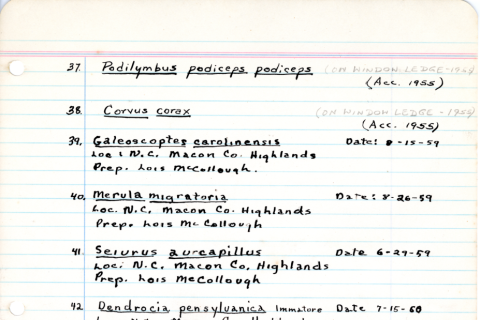 37. Podilymbus podiceps podiceps (ON WINDOW LEDGE-1959)
(Acc. 1955)
38. Corvus corax (ON WINDOW LEDGE - 1959)
(Acc. 1955)
39. Galeoscoptes carolinensis Date: 8-15-59
Loc: N.C. Macon Co. Highlands
Prep. Lois McCollough.
40. Merula migratoria Date: 8-26-59
Loc. N.C. Macon Co. Highlands
Prep. Lois McCollough
41 Seiurus aurcapillus Date 6-29-59
Loc: N.C. Macon Co, Highlands
Prep. Lois McCollough
42 Dendrocia pensylvanica Immature Date 7-15-60